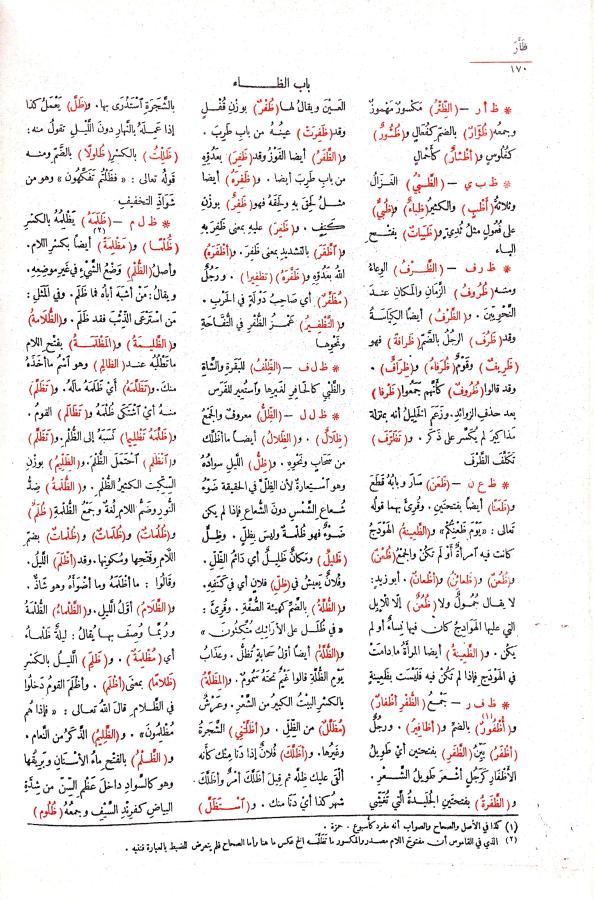 ظَأَرَ
١٧٠
باب الظاء
* ظ أ ر – (الظِّئْرُ) مَكسورٌ مَهموزٌ
وجمعه (ظُؤَارٌ) بالضم كفُعَالٍ و (ظُئُورٌ)
كفُلُوسٍ و (أَظْآرٌ) كأَحْمَالٍ
* ظ ب ي – (الظَّبْيُ) الغَزالُ
وثلاثةُ (أَظْبٍ) والكثيرُ (ظِبَاءٌ) و (ظُبِيٌّ)
على فُعُولٍ مثلُ ثُدِيٍّ و (ظَبَيَاتٌ) بفتح
الباء
* ظ ر ف – (الظَّرْفُ) الوِعاءُ
ومنه (ظُرُوفُ) الزَّمانِ والمكانِ عندَ
النَّحْوِيِّين . و (الظَّرْفُ) أيضًا الكِيَاسَةُ
وقد (ظَرُفَ) الرجلُ بالضمِّ (ظَرَافَةً) فهو
(ظَرِيفٌ) وقومٌ (ظُرَفَاءُ) و (ظِرَافٌ) .
وقد قالوا (ظُرُوفٌ) كأنَّهم جَمَعُوا (ظَرْفا)
بعد حذفِ الزوائد. وزَعَمَ الخليلُ أنه بمنزلة
مَذَاكِيرَ لم يُكَسَّر على ذَكَر . و (تَظَرَّفَ)
تَكَلَّفَ الظَّرْفَ
* ظ ع ن – (ظَعَنَ) سارَ وبابُه قَطَعَ
و (ظَعَنًا) أيضا بفتحتين. وقُرِئَ بهما قولُه
تعالى : «يَوْمَ ظَعْنِكُمْ» و (الظَّعِينَةُ) الهَوْدَجُ
كانت فيه آمرأةٌ أوْ لم تَكُنْ والجمعُ (ظُعُنٌ)
و (ظُعْنٌ) و (ظَعَائِنُ) و (أَظْعَانٌ) . أبو زيدٍ:
لا يقال حُمُولٌ ولا (ظُعُنٌ) إلّا للإبِل
التي عليها الهَوَادِجُ كان فيها نِساءٌ أو لم
يَكُن . و (الظَّعِينَةُ) أيضا المرأةُ ما دامت
في الهَوْدَج فإذا لم تكُنْ فيه فليست بظَعِينَةٍ
* ظ ف ر – جَمْعُ (الظُّفْرِ أَظْفَارٌ)
و (أُظْفُورٌ)(١) بالضم و (أَظَافِيرُ) . ورجلٌ
(أَظْفَرُ) بَيِّنُ (الظَّفَرِ) بفتحتين أيْ طَوِيلُ
الأَظْفَارِ كرَجُلٍ أَشْعَرَ طَوِيلُ الشَّعْر .
و (الظَّفَرَةُ) بفتحتين الجُلَيْدَةُ التي تُغَشِّي
العَيْنَ ويقالُ لها (ظُفْرٌ) بوزن قُفْلٍ
وقد (ظَفِرَتْ) عينُه من باب طَرِبَ .
و (الظَّفَرُ) أيضا الفَوْزُ وقد (ظَفِرَ) بعَدُوِّه
من باب طَرِبَ أيضا . و (ظَفِرَهُ) أيضا
مثلُ لَحِقَ به ولَحِقَهُ فهو (ظَفِرٌ) بوزن
كَتِفٍ . و (ظَفِرَ) عليه بمعنى ظَفِرَ به
و (اَظَّفَرَ) بالتشديد بمعنى ظَفِرَ. و (أَظْفَرَهُ)
اللهُ بعَدُوِّه و (ظَفَّرَهُ) (تَظْفِيرا) . ورَجُلٌ
(مُظَفَّرٌ) أي صاحبُ دَوْلَةٍ في الحَرْبِ .
و (التَّظْفِيرُ) غَمْزُ الظُّفْرِ في التُّفَّاحَةِ
ونَحْوِها
* ظ ل ف – (الظِّلْفُ) للبَقَرةِ والشَّاةِ
والظَّبْيِ كالحَافِرِ لغيرِها وآستُعِيرَ للفَرَس
* ظ ل ل – (الظِّلُّ) معروفٌ والجمعُ
(ظِلَالٌ) . و (الظِّلَالُ) أيضًا ما أظَلَّكَ
من سَحَابٍ ونَحْوِه . و (ظِلُّ) الليلِ سَوادُه
وهو استعارةٌ لأن الظِّلَّ في الحقيقة ضَوْءُ
شُعاعِ الشَّمْسِ دُونَ الشُّعاعِ فإذا لم يكن
ضَوْءٌ فهو ظُلْمةٌ وليس بِظِلٍّ . وظِلٌّ
(ظَلِيلٌ) ومكانٌ ظَلِيلٌ أي دائمُ الظِّلِّ .
وفُلانٌ يَعِيشُ في (ظِلِّ) فُلانٍ أيْ في كَنَفِهِ.
و (الظُّلَّةُ) بالضم كهيئة الصُّفَّةِ . وقُرِئَ :
«في ظُلَلٍ على الأَرَائِكِ مُتَّكِئُونَ» .
و (الظُّلَّةُ) أيضا أوَّلُ سَحابةٍ تُظِلُّ . وعَذَابُ
يَوْمِ الظُّلَّةِ قالوا غَيْمٌ تحتَه سَمُومٌ. و (المِظَلَّةُ)
بالكسر البَيْتُ الكَبيرُ من الشَّعَر . وعَرْشٌ
(مُظَلَّلٌ) من الظِّلِّ . و (أَظَلَّتْنِي) الشَّجَرةُ
وغيرُها. و (أَظَلَّكَ) فُلانٌ إذا دَنا مِنْكَ كأنه
أَلْقَى عليك ظِلَّهُ ثم قيلَ أظَلَّكَ أمْرٌ وأظَلَّكَ
شهرُ كذا أيْ دَنا منك . و (آسْتَظَلَّ)
بالشَّجَرةِ آسْتَذْرَى بها. و (ظَلَّ) يَعْمَلُ كذا
إذا عَمِلَهُ بالنَّهارِ دونَ اللَّيلِ تقولُ منه:
(ظَلِلْتُ) بالكسر (ظُلُولا) بالضمِّ ومنه
قولُه تعالى : «فَظَلْتُمْ تَفَكَّهُونَ» وهو من
شَواذِّ التخفيفِ
* ظ ل م – (ظَلَمَهُ) يَظْلِمُهُ بالكسر
(ظُلْمًا) و (مَظْلِمَةً)(٢) أيضًا بكسر اللام.
وأصلُ (الظُّلْمِ) وَضْعُ الشَّيْءِ في غَيْرِ مَوْضِعِه.
ويقالُ: مَنْ أشْبَهَ أباهُ فما ظَلَم . وفي المَثَل:
مَن اسْتَرْعَى الذِّئْبَ فقد ظَلَم . و (الظُّلَامَةُ)
و (الظَّلِيمَةُ) و (المَظْلَمَةُ) بفتح اللام
ما تَطْلُبُه عند (الظالِمِ) وهو آسمُ ما أُخِذَهُ
منك. و (تَظَلَّمَهُ) أيْ ظَلَمَهُ مالَه. و (تَظَلَّمَ)
منه أيْ آشْتَكَى ظُلْمَهُ و (تَظَالَمَ) القومُ .
و (ظَلَّمَهُ تَظْلِيما) نَسَبَهُ إلى الظُّلْم. و (تَظَلَّمَ)
و (اَنْظَلَمَ) آحتملَ الظُّلْمَ. و (الظِّلِّيمُ) بوزن
السِّكِّيتِ الكثيرُ الظُّلْمِ . و (الظُّلْمَةُ) ضِدُّ
النُّورِ وضَمُّ اللام لُغةٌ وجَمْعُ الظُّلْمةِ (ظُلَمٌ)
و (ظُلُمَاتٌ) و (ظُلَمَاتٌ) و (ظُلْمَاتٌ) بضم
اللام وفتحِها وسُكونها. وقد (أَظْلَمَ) الليلُ.
وقالوا : ما أظْلَمَهُ وما أضْوَأَهُ وهو شاذٌّ .
و (الظَّلَامُ) أوّلُ الليلِ. و (الظَّلْمَاءُ) الظُّلْمَةُ
ورُبَّما وُصِفَ بها يُقالُ: لَيلَةٌ ظَلْماءُ
أي (مُظْلِمَةٌ) . و (ظَلِمَ) الليلُ بالكسر
(ظَلَامًا) بمعنى (أَظْلَمَ) . وأظْلَمَ القومُ دَخَلُوا
في الظَّلام. قال اللهُ تعالى : «فإذا هُم
مُظْلِمُونَ» . و (الظَّلِيمُ) الذَّكَرُ من النَّعام .
و (الظَّلْمُ) بالفتح ماءُ الأسْنانِ وبَرِيقُها
وهو كالسَّوَادِ داخِلَ عَظْمِ السِّنِّ من شِدَّةِ
البَياضِ كفِرِنْدِ السَّيْفِ وجمعُه (ظُلُوم)
(١) كذا في الأصل والصحاح والصواب أنه مفرد كأسبوع . حمزة .
(٢) الذي في القاموس أن مفتوح اللام مصدر والمكسور ما تَظَلَّمه الخ عكس ما هنا وأما الصحاح فلم يتعرض للضبط بالعبارة فتنبه .